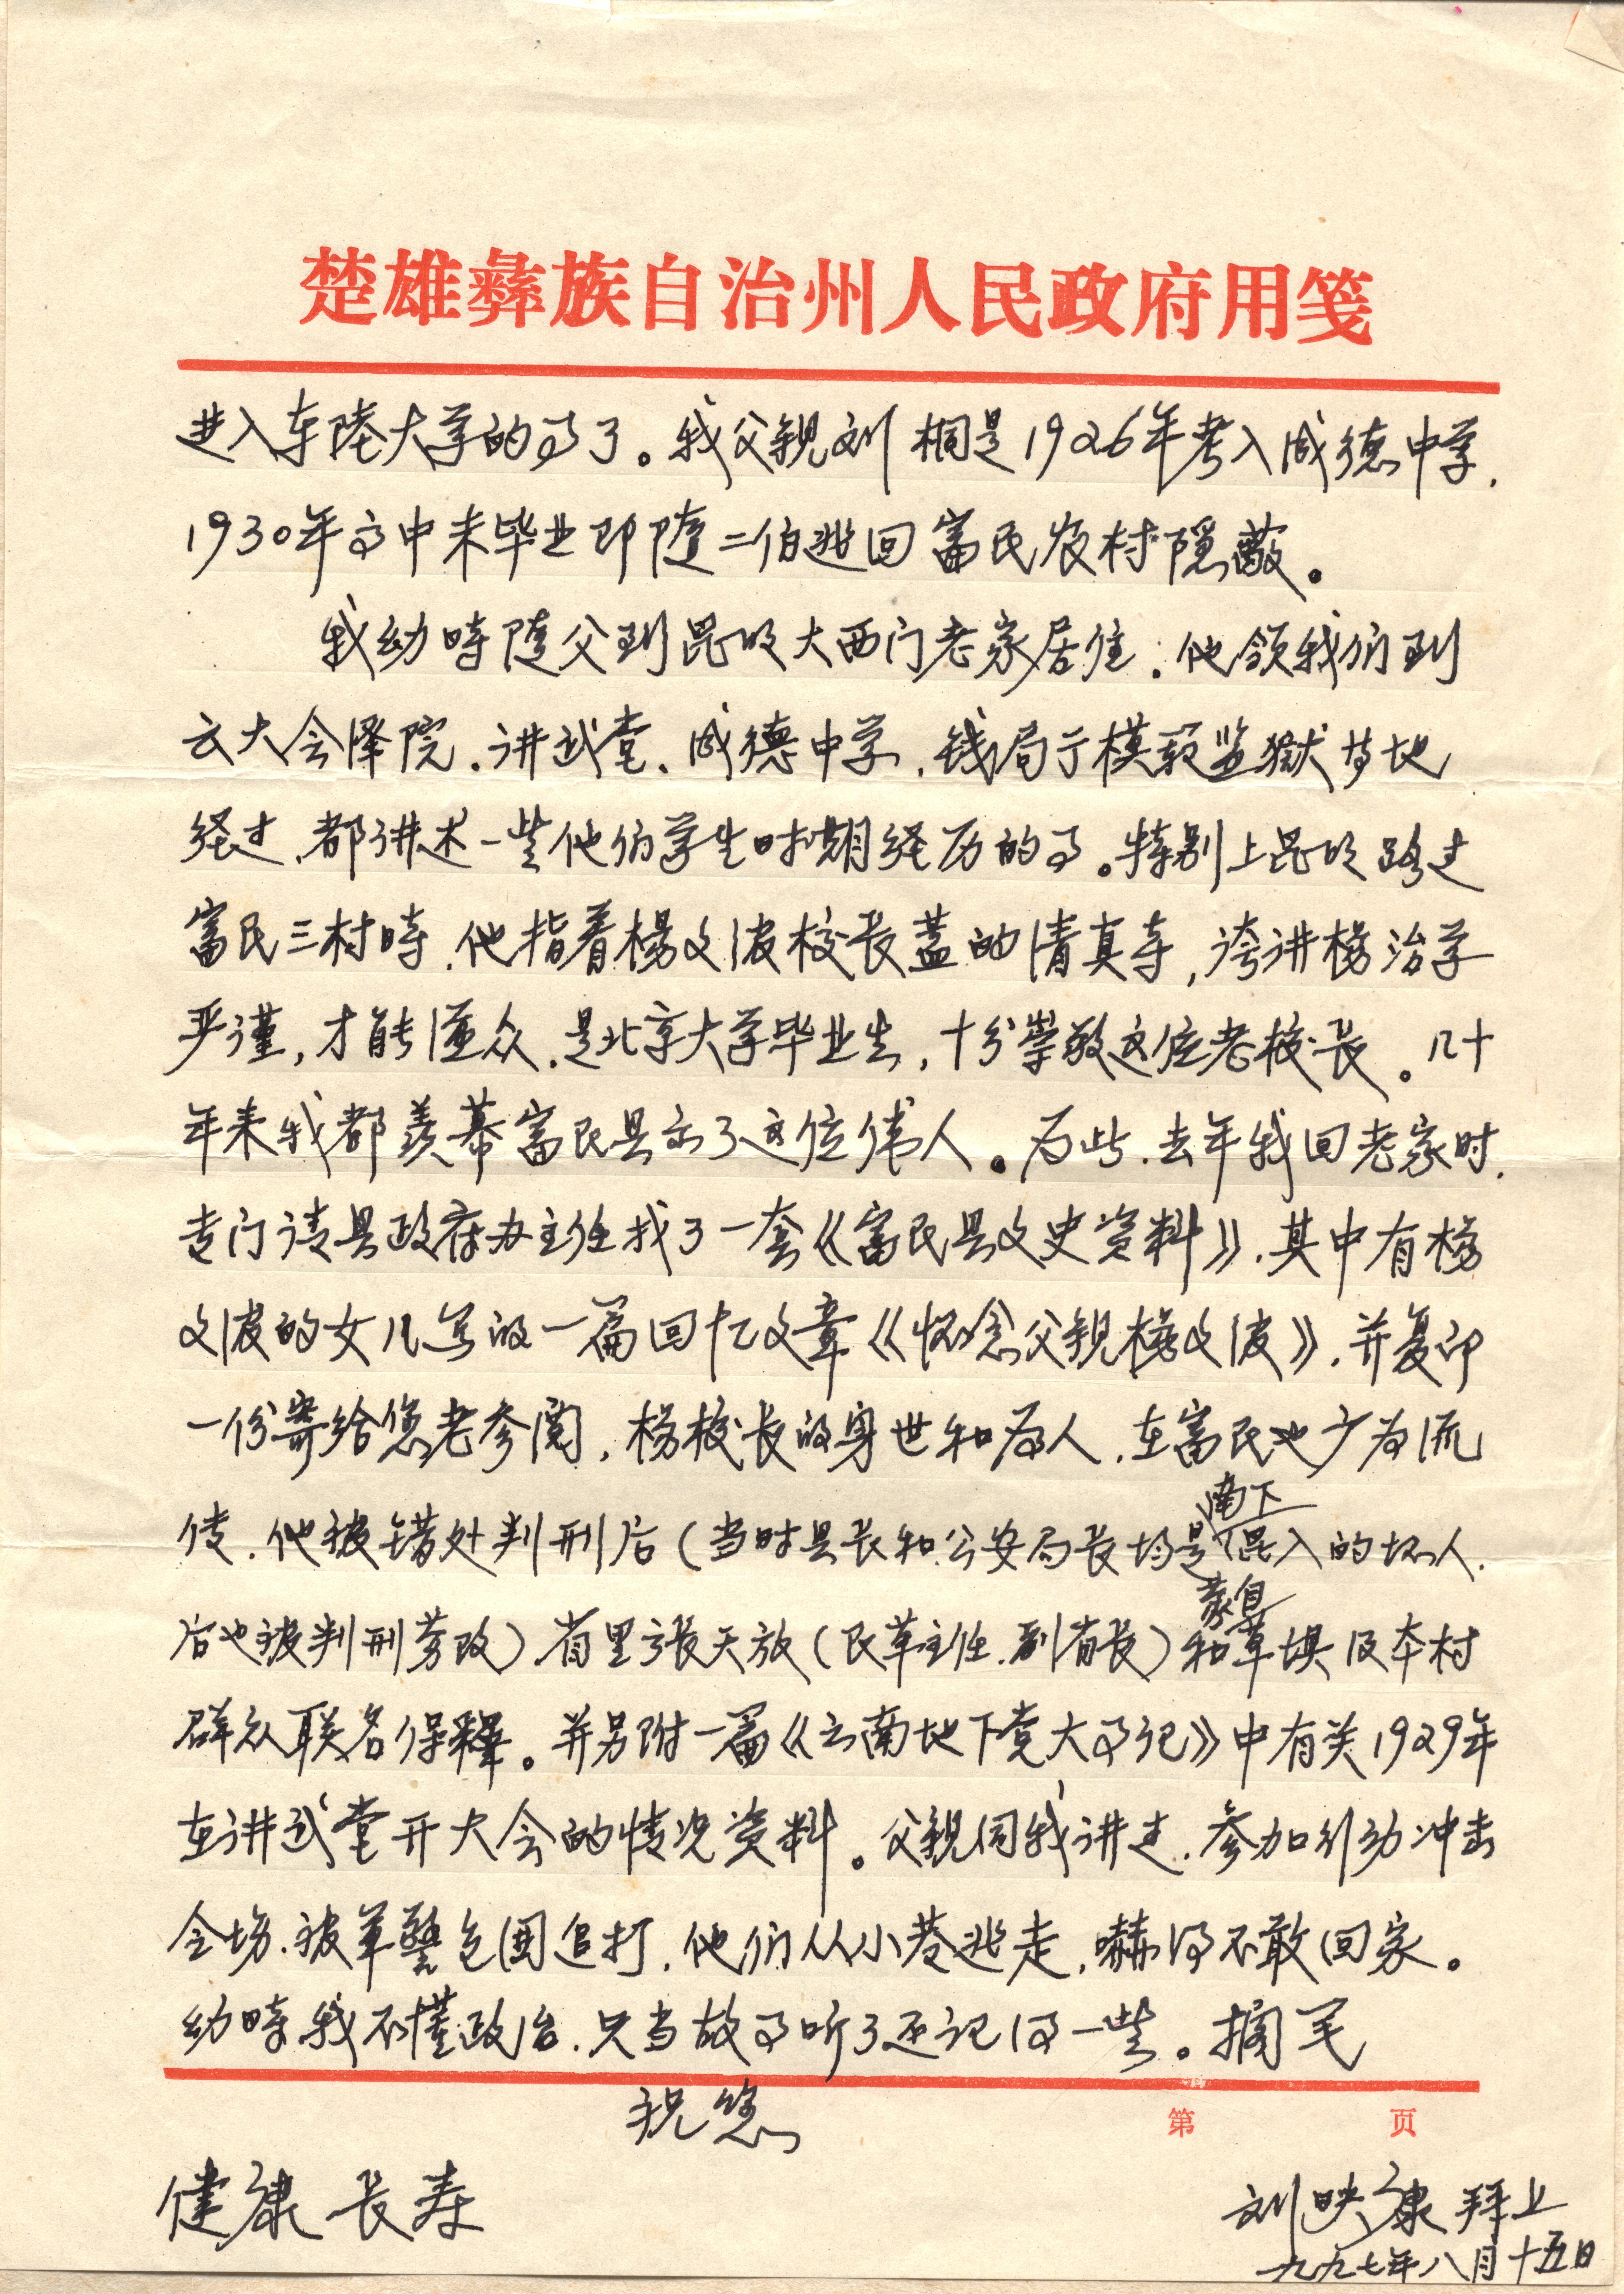 楚雄彝族自治州人民政府用笺
进入东陆大学的事了。我父亲刘桐是1926年考入成德中学,
1930年高中未毕业即随二伯逃回富民农村隐蔽。
我幼时随父到昆明大西门老家居住,他领我们到
云大会泽院、讲武堂、成德中学、钱局街模范监狱等地
经过,都讲述一些他们学生时期经历的事。特别上昆明路过
富民三村时,他指着杨文波校长盖的清真寺,夸讲杨治学
严谨,才能懂众,是北京大学毕业生,十分崇敬这位老校长。几十
年来我都羡慕富民县出了这位伟人。为此,去年我回老家时,
专门请县政府办主任找了一套《富民县文史资料》,其中有杨
文波的女儿写的一篇回忆文章《怀念父亲杨文波》,并复印
一份寄给您老参阅,杨校长的身世和为人,在富民也广为流
传,他被错处判刑后(当时县长和公安局长均是南下混入的坏人,
后也被判刑劳改)省里张天放(民革主任、副省长)和蒙自草坝及本村
群众联名保释。并另附一篇《云南地下党大事记》中有关1929年
在讲武堂开大会的情况资料。父亲同我讲过,参加行动冲击
会场,被军警包围追打,他们从小巷逃走,嚇得不敢回家。
幼时我不懂政治,只当故事听了还记得一些。搁笔
祝您
第 页
健康长寿
刘映康拜上
一九九七年八月十五日